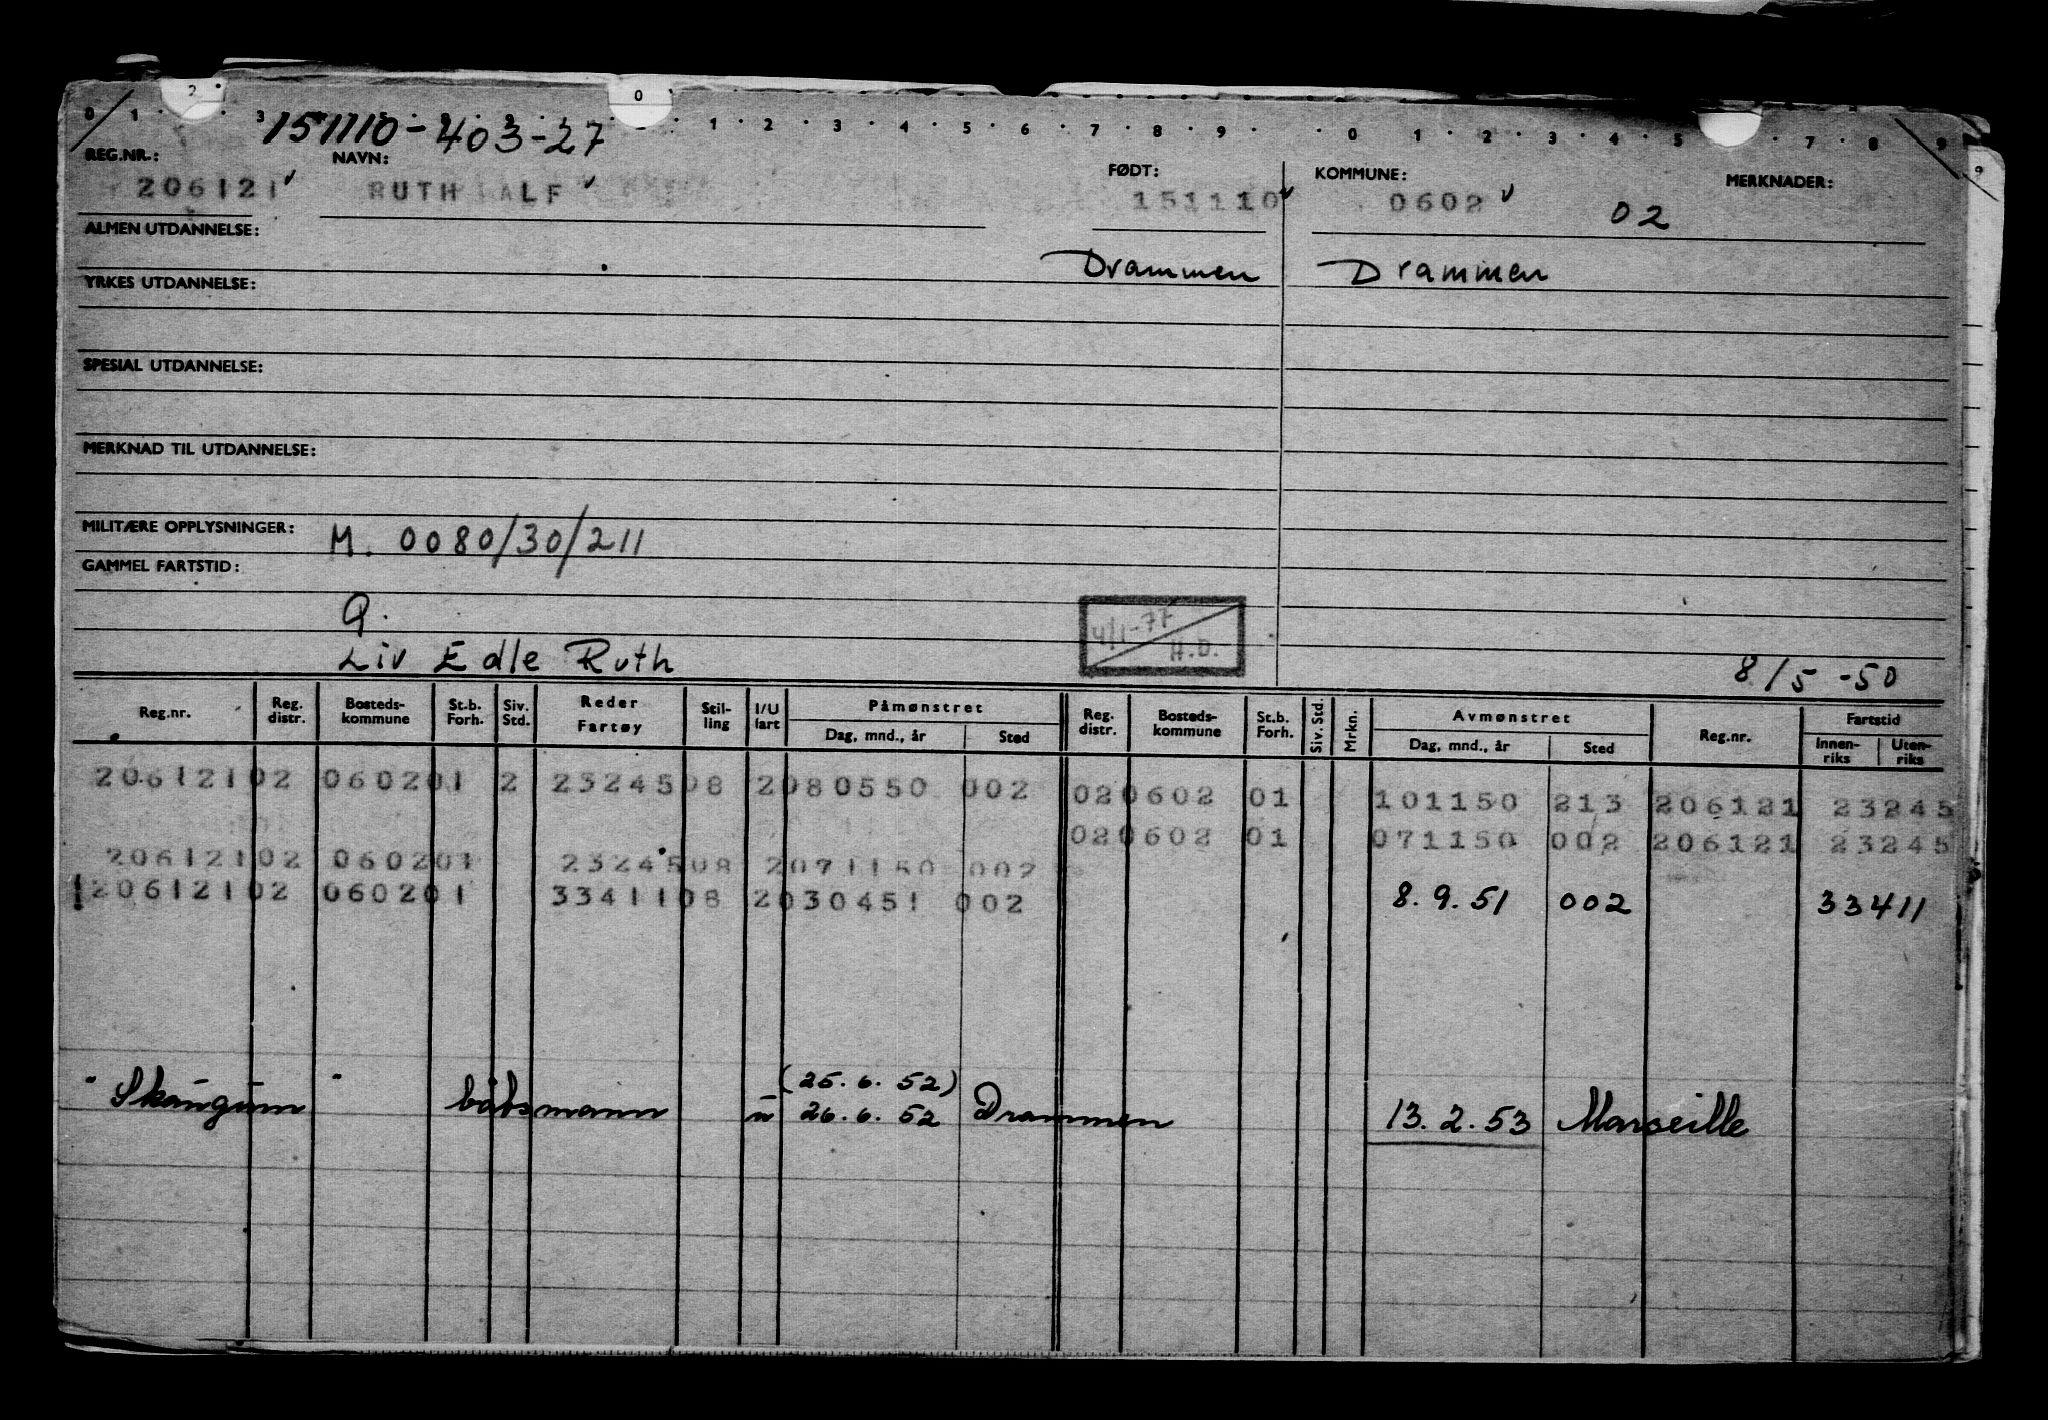 2 0
0 1 3 1 2 3 4 5 6 7 8 9 0 1 2 3 4 5 7 8 9 9
151110-403-27
REG.NR.: NAVN: FØDT: KOMMUNE: MERKNADER:
206121 RUTH ALF 151110 0602 02
ALMEN UTDANNELSE:
Drammen Drammen
YRKES UTDANNELSE:
SPESIAL UTDANNELSE:
MERKNAD TIL UTDANNELSE:
MILITÆRE OPPLYSNINGER: M. 0080/30/211
GAMMEL FARTSTID:
G.
4/1-77
H.D.
Liv Edle Ruth 8/5-50
Reg.nr. Reg. distr. Bosteds-kommune St.b. Forh. Siv. Std. Reder Fartøy Stil-ling I/U fart Påmønstret Dag, mnd., år Sted Reg. distr. Bosteds-kommune St.b. Forh. Siv. Std. Mrkn. Avmønstret Dag, mnd., år Sted Reg.nr. Fartstid Innen-riks Uten-riks
206121 02 0602 01 2 23245 08 2 080550 002 02 0602 01 101150 213 206121 23245
02 0602 01 071150 002 206121 23245
206121 02 0602 01 23245 08 2 071150 002
206121 02 0602 01 33411 08 2 030451 002 8.9.51 002 33411
(25.6.52)
"Skaugum" båtsmann u 26.6.52 Drammen 13.2.53 Marseille